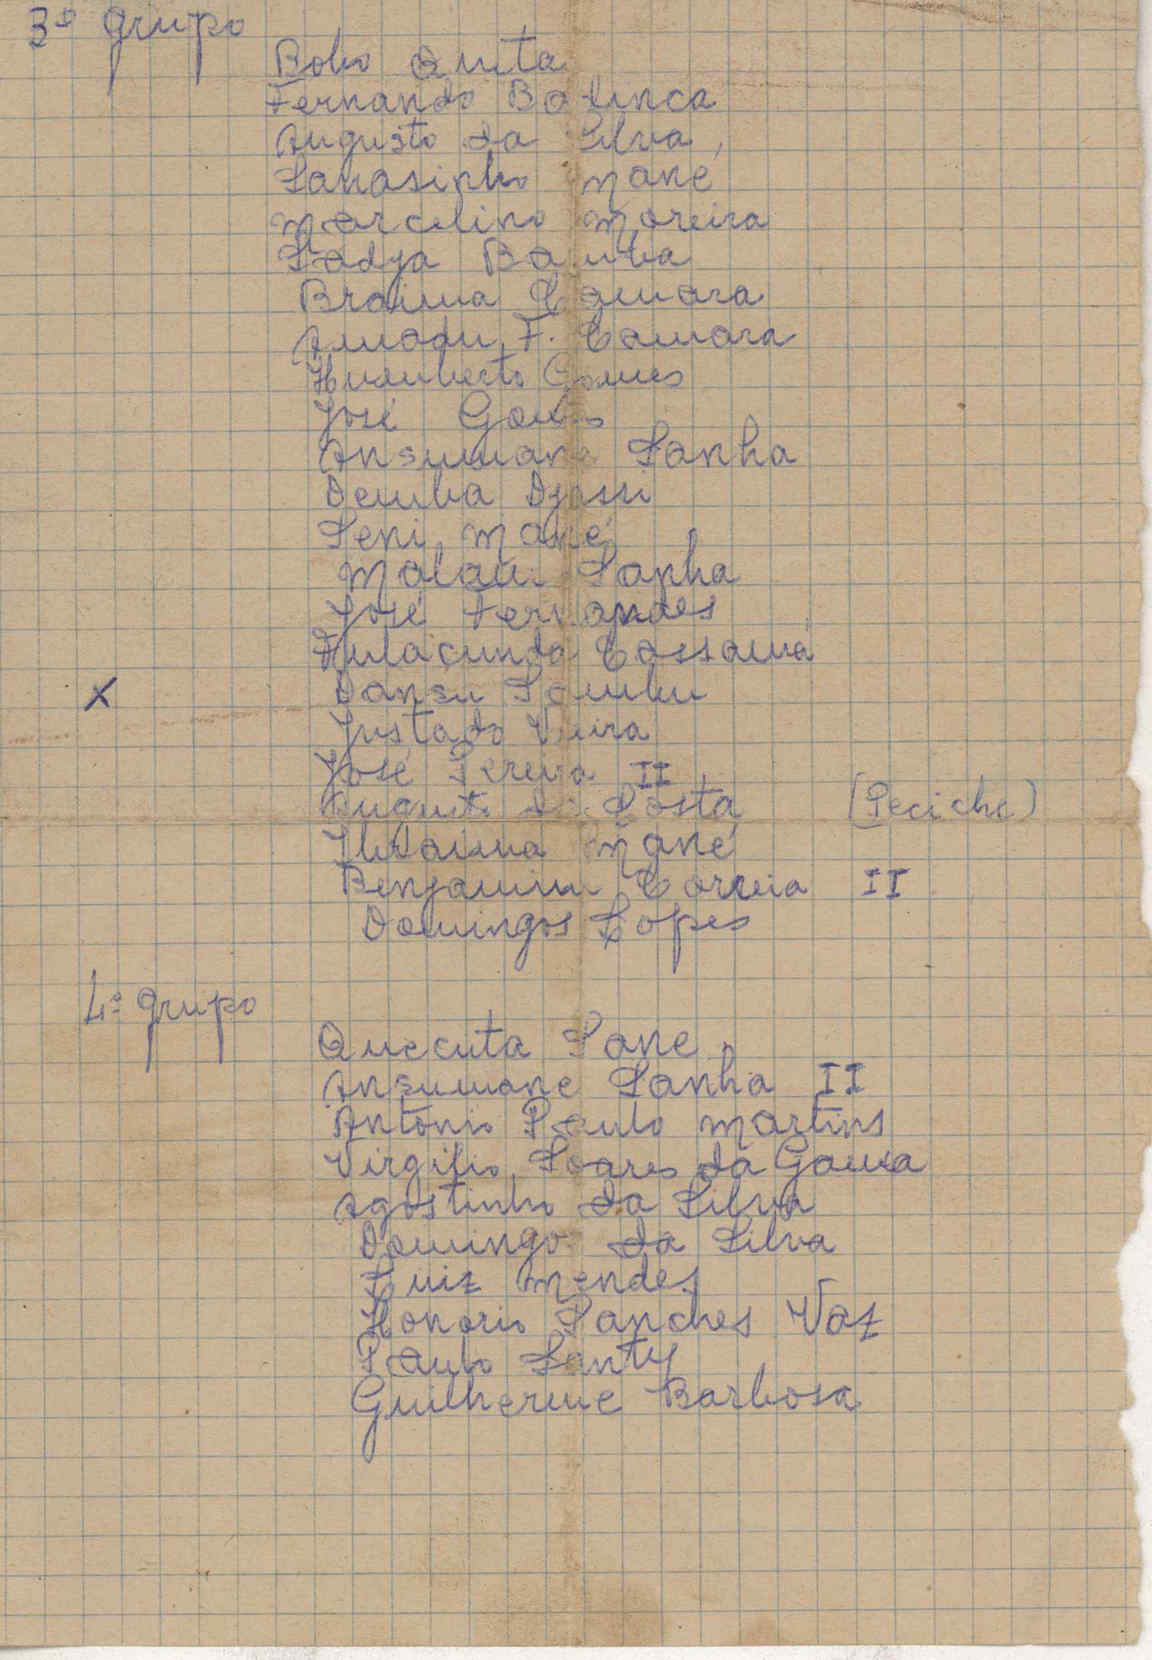 3º grupo
Bobo Quita
Fernando Batinca
Augusto da Silva
Lanasinho Mané
Marcelino Moreira
Sadja Bamba
Braima Camara
Amadu F. Camara
Humberto Gomes
José Gomes
Ansumane Sanha
Demba Djassi
Seni Mané
Malam Sanha
José Fernandes
Fulacunda Cassamá
X Dansu Sambu
Justado Vieira
José Pereira II
Augusto da Costa (Peciche)
Ibraima Mané
Benjamim Correia II
Domingos Lopes
4º grupo
Quecuta Sane
Ansumane Sanha II
António Paulo Martins
Virgilio Soares da Gama
Agostinho da Silva
Domingo da Silva
Luiz Mendes
Honorio Sanches Vaz
Paulo Santy
Guilherme Barbosa